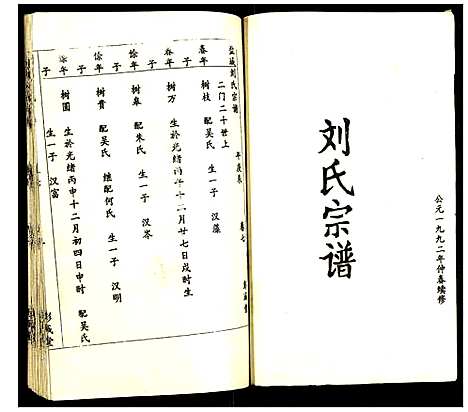 公元一九九二年仲春续修
刘氏宗谱
盐城刘氏宗谱
卷七
二门二十世上
春年子
树枝 配吴氏 生一子 汉藻
春年子
树万 生於光绪丙午十二月廿七日戌时生
馀年子
树皋 配朱氏 生一子 汉岑
馀年子
树贵 配吴氏 继配何氏 生一子 汉明
馀年子
树国 生於光绪丙申十二月初四日申时 配吴氏
生一子 汉富
彭城堂